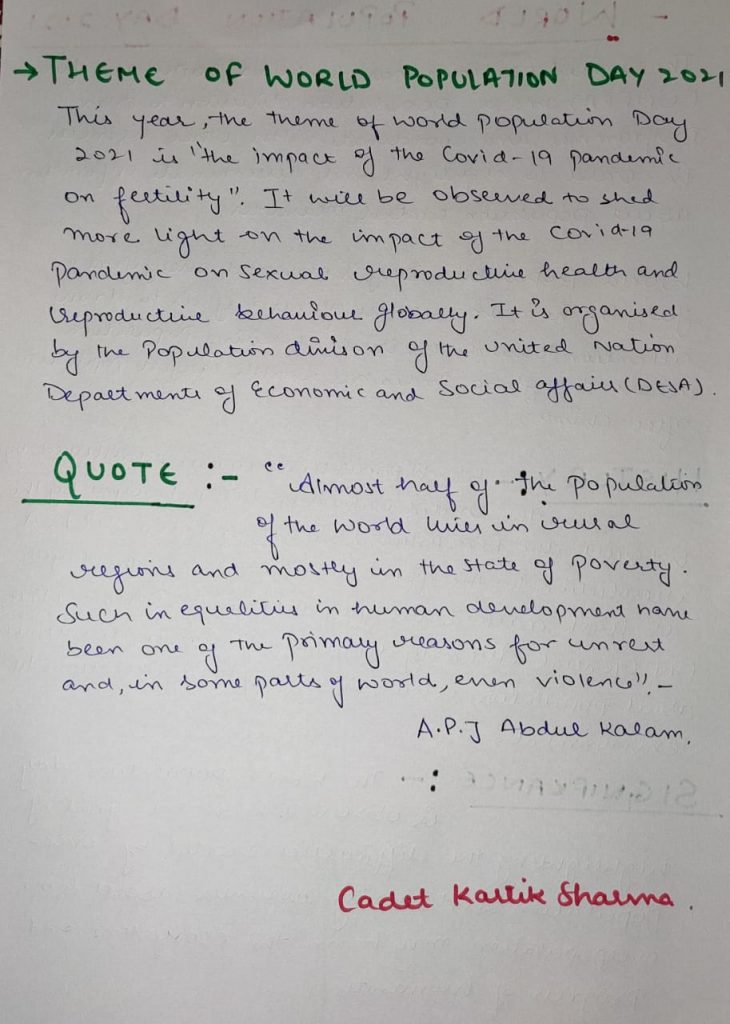 → THEME OF WORLD POPULATION DAY 2021
This year, the theme of world population Day
2021 is "the impact of the Covid-19 pandemic
on fertility". It will be observed to shed
more light on the impact of the Covid-19
Pandemic on sexual reproductive health and
reproductive behaviour globally. It is organised
by the Population divison of the United Nation
Departments of Economic and Social affairs (DESA).
QUOTE :- "Almost half of the population
of the world lives in rural
regions and mostly in the state of poverty.
Such in equalities in human development have
been one of the primary reasons for unrest
and, in some parts of world, even violence". -
A.P.J Abdul Kalam.
Cadet Kartik Sharma.